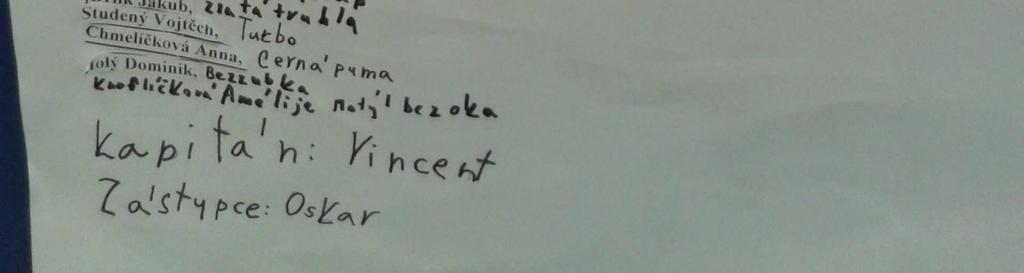 Jakub, zlatá truhla
Studený Vojtěch, Turbo
Chmelíčková Anna, Černá puma
Dominik, Bezzubka
Knoflíčková Amélije motýl bezoka
Kapitán: Vincent
Zástypce: Oskar